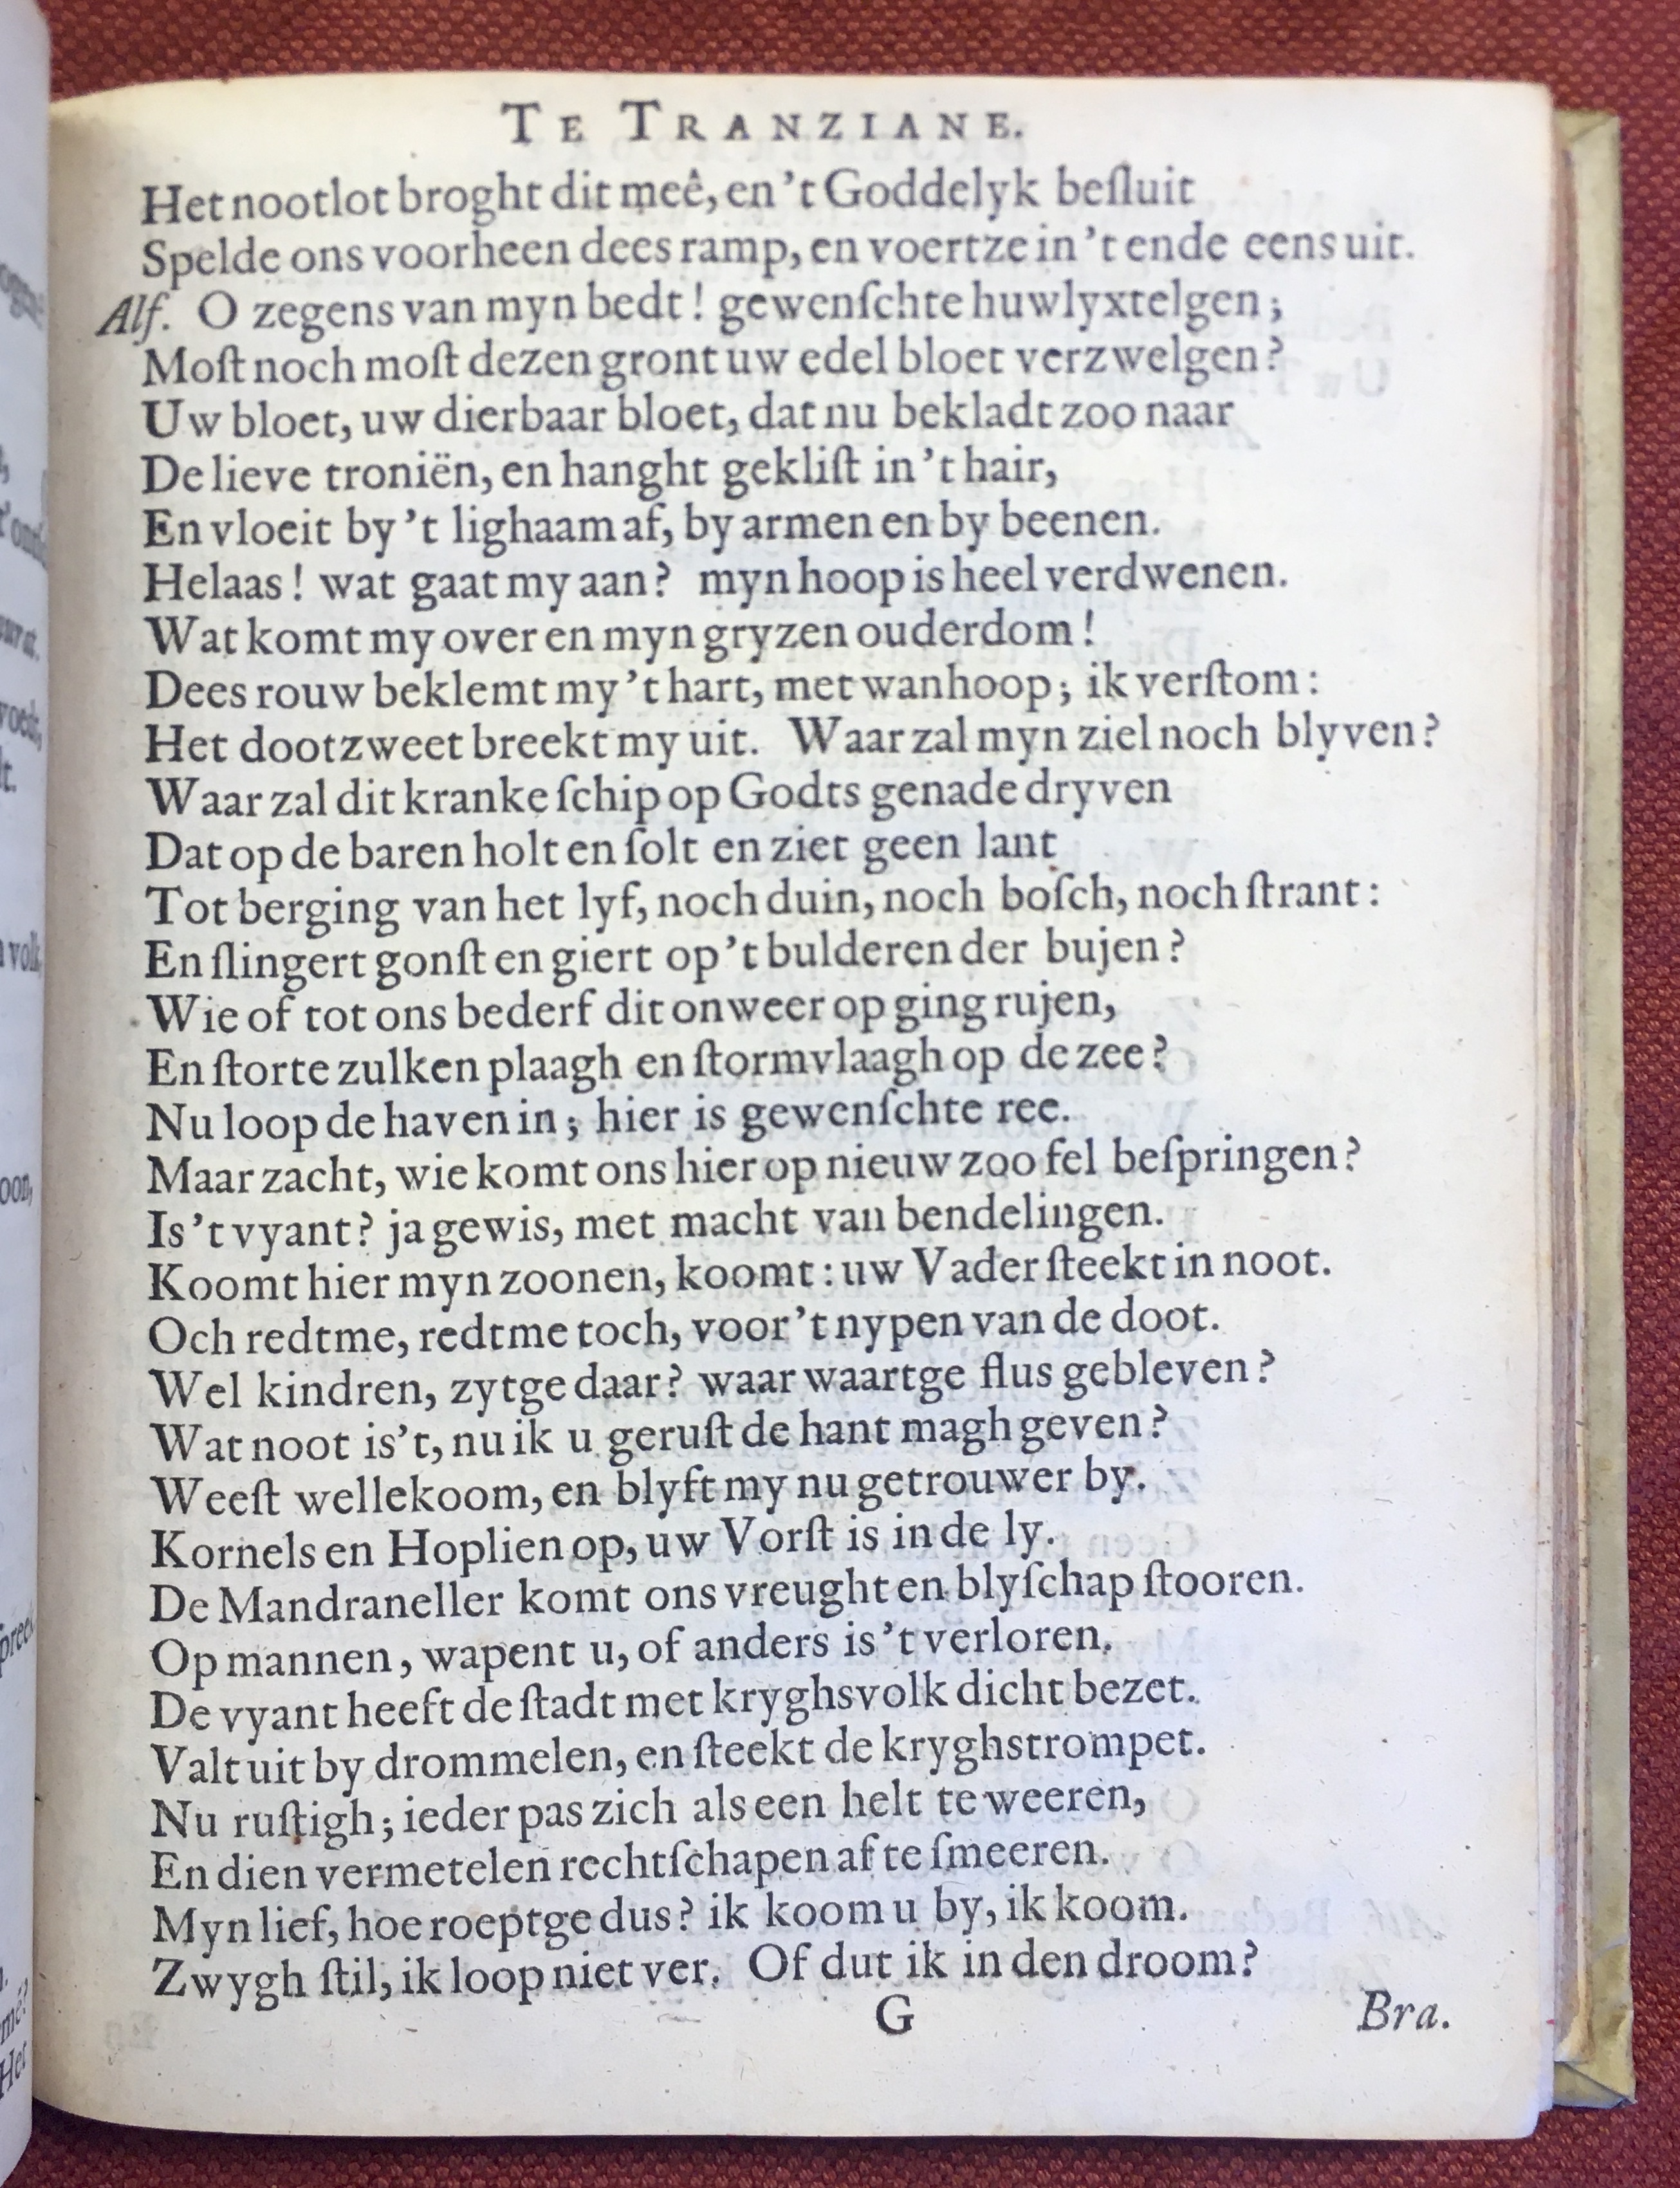 TE TRANZIANE.
Het nootlot broght dit meê, en 't Goddelyk beſluit
Spelde ons voorheen dees ramp, en voertze in 't ende eens uit.
Alf. O zegens van myn bedt! gewenſchte huwlyxtelgen;
Moſt noch moſt dezen gront uw edel bloet verzwelgen?
Uw bloet, uw dierbaar bloet, dat nu bekladt zoo naar
De lieve troniën, en hanght gekliſt in 't hair,
En vloeit by 't lighaam af, by armen en by beenen.
Helaas! wat gaat my aan? myn hoop is heel verdwenen.
Wat komt my over en myn gryzen ouderdom!
Dees rouw beklemt my 't hart, met wanhoop; ik verſtom:
Het dootzweet breekt my uit. Waar zal myn ziel noch blyven?
Waar zal dit kranke ſchip op Godts genade dryven
Dat op de baren holt en ſolt en ziet geen lant
Tot berging van het lyf, noch duin, noch boſch, noch ſtrant:
En ſlingert gonſt en giert op 't bulderen der bujen?
Wie of tot ons bederf dit onweer op ging rujen,
En ſtorte zulken plaagh en ſtormvlaagh op de zee?
Nu loop de haven in; hier is gewenſchte ree.
Maar zacht, wie komt ons hier op nieuw zoo fel beſpringen?
Is 't vyant? ja gewis, met macht van bendelingen.
Koomt hier myn zoonen, koomt: uw Vader ſteekt in noot.
Och redtme, redtme toch, voor 't nypen van de doot.
Wel kindren, zytge daar? waar waartge flus gebleven?
Wat noot is't, nu ik u geruſt de hant magh geven?
Weeſt wellekoom, en blyft my nu getrouwer by.
Kornels en Hoplien op, uw Vorſt is in de ly.
De Mandraneller komt ons vreught en blyſchap ſtooren.
Op mannen, wapent u, of anders is 't verloren.
De vyant heeft de ſtadt met kryghsvolk dicht bezet.
Valt uit by drommelen, en ſteekt de kryghstrompet.
Nu ruſtigh; ieder pas zich als een helt te weeren,
En dien vermetelen rechtſchapen af te ſmeeren.
Myn lief, hoe roeptge dus? ik koom u by, ik koom.
Zwygh ſtil, ik loop niet ver. Of dut ik in den droom?
G Bra.